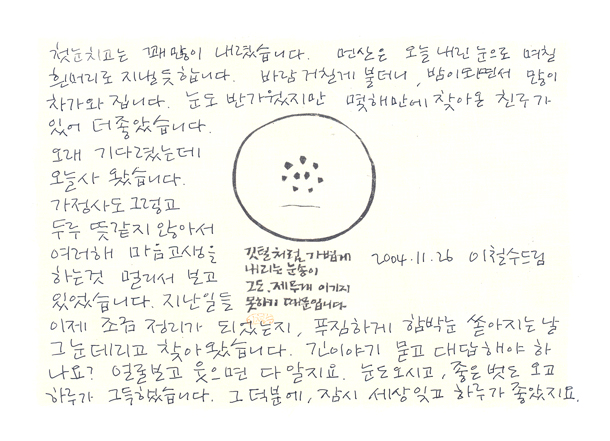 첫눈치고는 꽤 많이 내렸습니다. 먼산은 오늘 내린 눈으로 며칠
흰머리로 지낼듯합니다. 바람 거칠게 불더니, 밤이되면서 많이
차가와 집니다. 눈도 반가웠지만 몇해만에 찾아온 친구가
있어 더 좋았습니다.
오래 기다렸는데
오늘사 왔습니다.
가정사도 그렇고
두루 뜻같지 않아서
여러해 마음고생을
하는것 멀리서 보고
있었습니다. 지난일들
이제 조금 정리가 되었는지, 푸짐하게 함박눈 쏟아지는 날
그눈데리고 찾아왔습니다. 긴이야기 묻고 대답해야 하
나요? 얼굴보고 웃으면 다 알지요. 눈도오시고, 좋은 벗도 오고
하루가 그득했습니다. 그 덕분에, 잠시 세상잊고 하루가 좋았지요.
깃털처럼 가볍게
내리는 눈송이
그도, 제무게 이기지
못하기 때문입니다.
2004.11.26 이철수드림